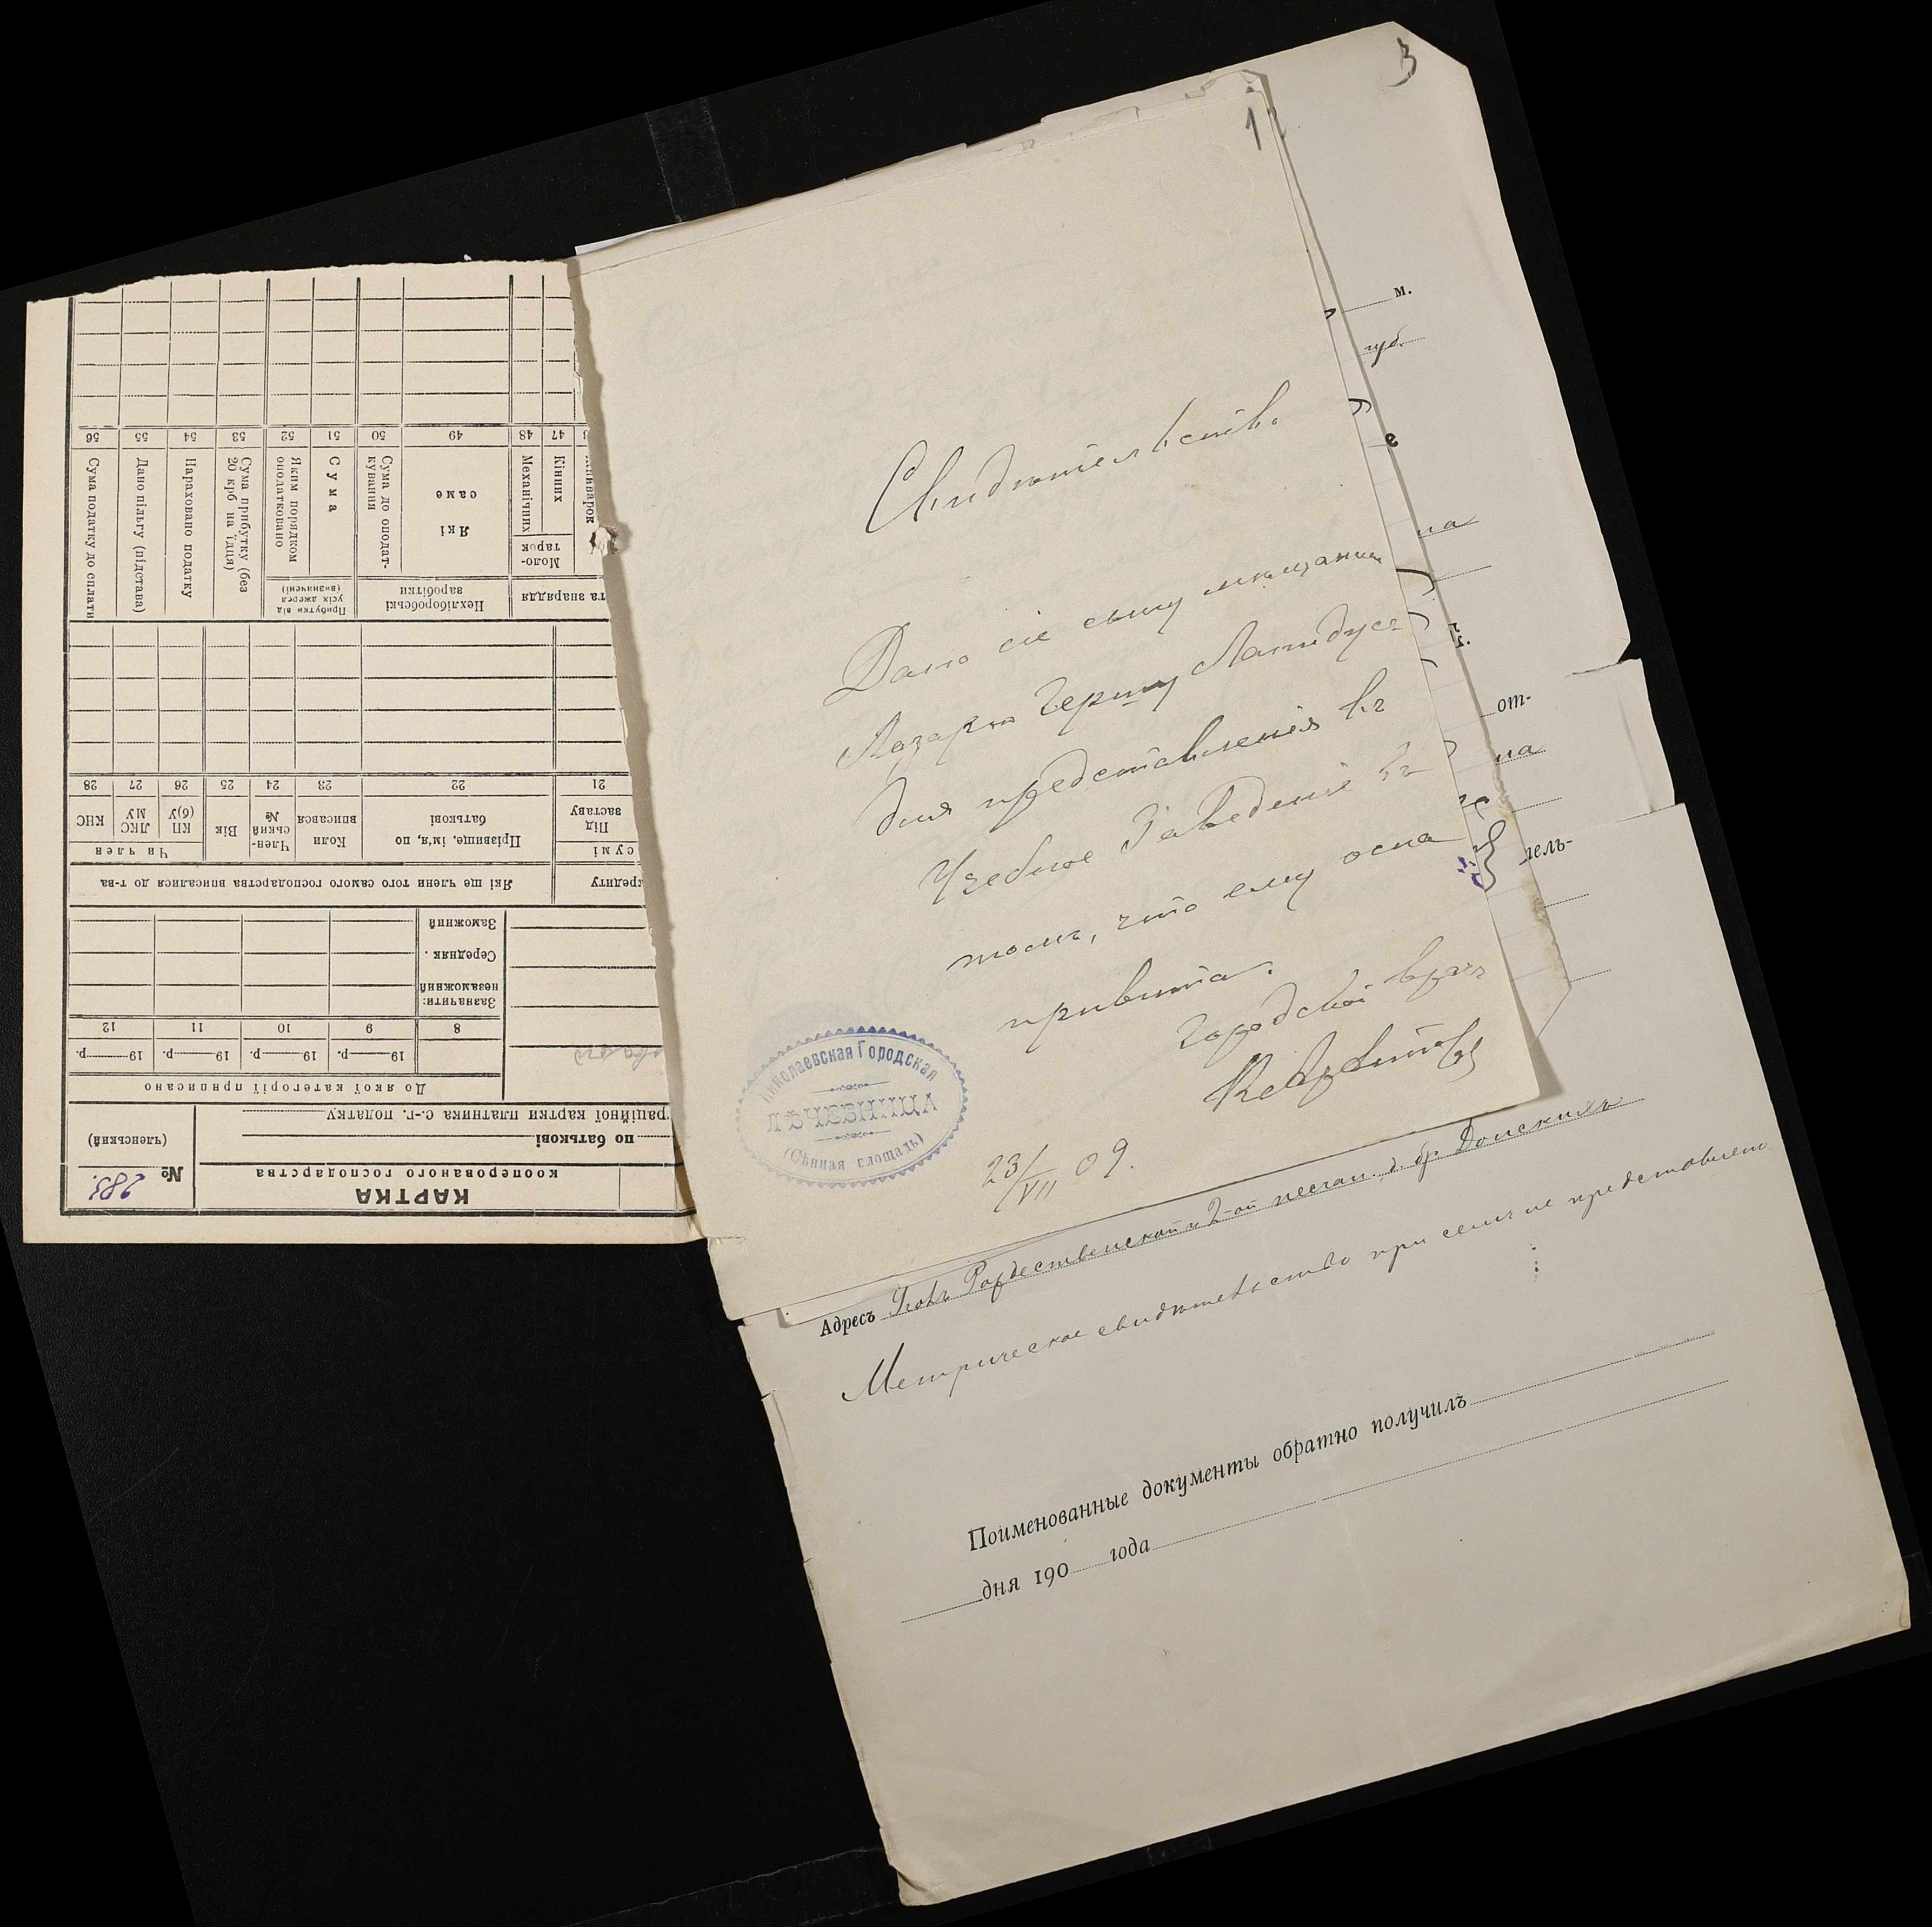 3
1
м.
губ.
Свидѣтельство
Дано сіе сыну мѣщанина
Лазарю Гершу Лапидусъ
для представленія въ
Учебное Заведеніе въ
томъ, что ему оспа
привита.
Городской врачъ
Николаевская Городская
ЛѢЧЕБНИЦА
(Сѣнная площадь)
23/VII 09.
на
от-
на
тель-
Адресъ Рождественской и 2-ой песчан. д. бр. Донскихъ
Метрическое свидѣтельство при семъ не представлено
Поименованные документы обратно получилъ
дня 190 года
КАРТКА
кооперованого господарства
№ 283.
(членський)
по батькові
раційної картки платника с.-г. податку
До якої категорії приписано
19 р. 19 р. 19 р. 19 р.
8 9 10 11 12
Зазначити:
незаможний
Середняк
Заможний
кредиту
Які ще члени того самого господарства вписалися до т-ва
сумі
Під заставу
Прізвище, ім'я, по батькові
Коли вписався
Член-ський №
Вік
Чи член
КП (б)У
ЛКС МУ
КНС
21 22 23 24 25 26 27 28
та знаряддя
Нехліборобські заробітки
Прибутки від усіх джерел (визначені)
Моло-тарок
Кінних
Механічних
Які саме
Сума до оподат-кування
Сума
Яким порядком оподатковано
Сума прибутку (без 20 крб на їдця)
Нараховано податку
Дано пільгу (підстава)
Сума податку до сплати
47 48 49 50 51 52 53 54 55 56